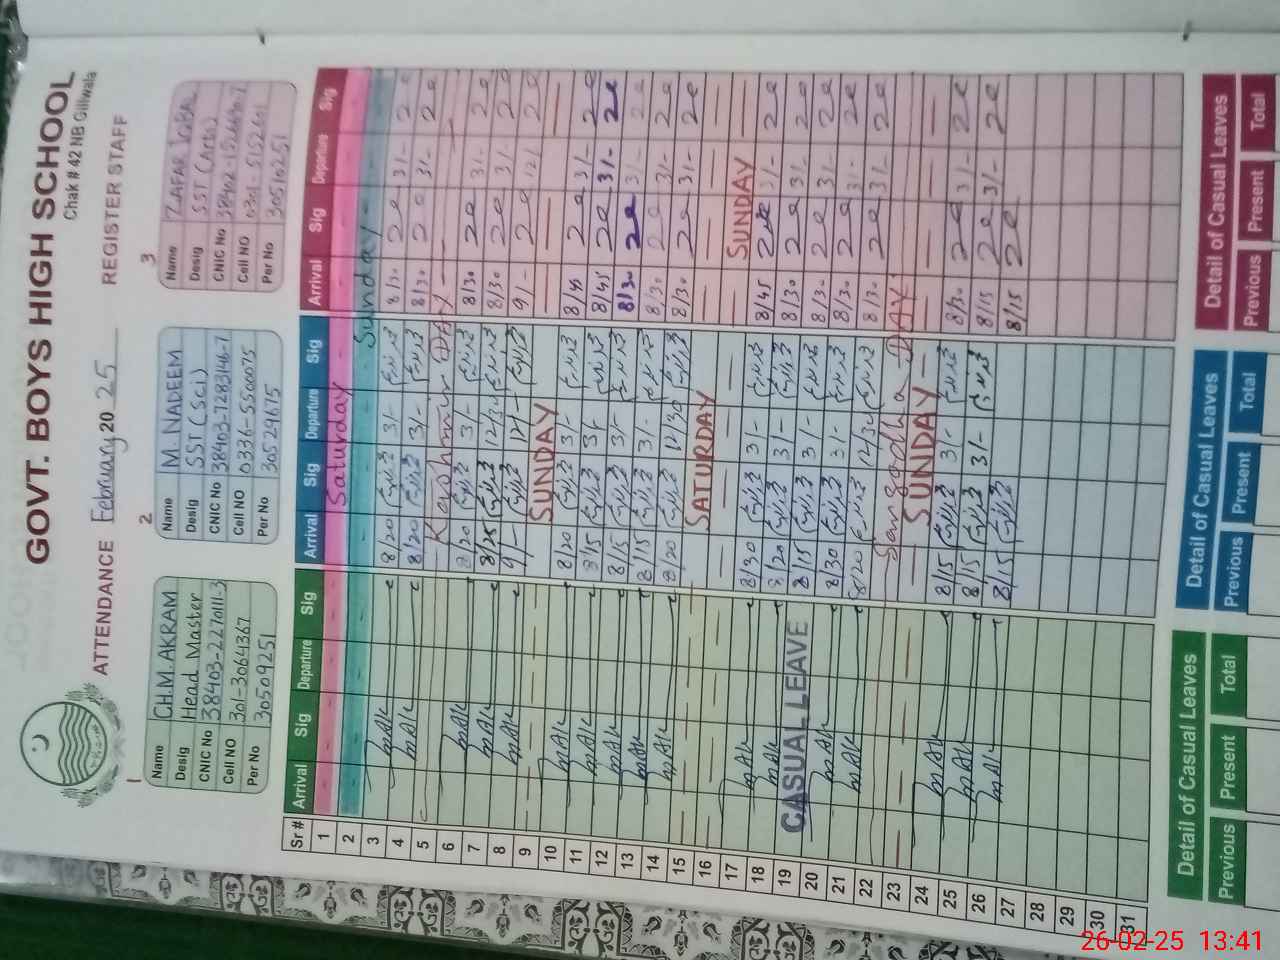 GOVT. BOYS HIGH SCHOOL
Chak # 42 NB Gillwala
ATTENDANCE February 20 25 REGISTER STAFF
1
Name CH.M.AKRAM
Desig Head Master
CNIC No 38403-2270111-3
Cell NO 301-3064367
Per No 30509251
2
Name M. NADEEM
Desig SST (Sci)
CNIC No 38403-7283146-7
Cell NO 0336-5500075
Per No 30529675
3
Name ZAFAR IQBAL
Desig SST (Arts)
CNIC No
Cell NO 0301-5152601
Per No 30510251
Sr # Arrival Sig Departure Sig Arrival Sig Departure Sig Arrival Sig Departure Sig
1 Saturday
2 Sunday
3 8/20 3/- 8/30 3/-
4 8/20 3/- 8/30 3/-
5 Kashmir DAY
6 8/20 3/- 8/30 3/-
7 8/25 12/30 8/30 3/-
8 9/- 12/- 9/- 12/
9 SUNDAY
10 8/20 3/- 8/45 3/-
11 8/15 3/- 8/45 3/-
12 8/15 3/- 8/30 3/-
13 8/15 3/- 8/30 3/-
14 8/20 12/30 8/30 3/-
15 SATURDAY
16 SUNDAY
17 8/30 3/- 8/45 3/-
18 8/20 3/- 8/30 3/-
19 CASUAL LEAVE 8/15 3/- 8/30 3/-
20 8/30 3/- 8/30 3/-
21 8/20 12/30 8/30 3/-
22 Sargodha DAY
23 SUNDAY
24 8/15 3/- 8/30 3/-
25 8/15 3/- 8/15 3/-
26 8/15 8/15
27
28
29
30
31
Detail of Casual Leaves Detail of Casual Leaves Detail of Casual Leaves
Previous Present Total Previous Present Total Previous Present Total
26-02-25 13:41